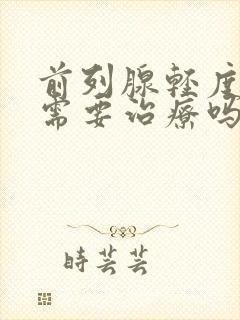 前列腺轻度
需要治疗吗
時芸芸